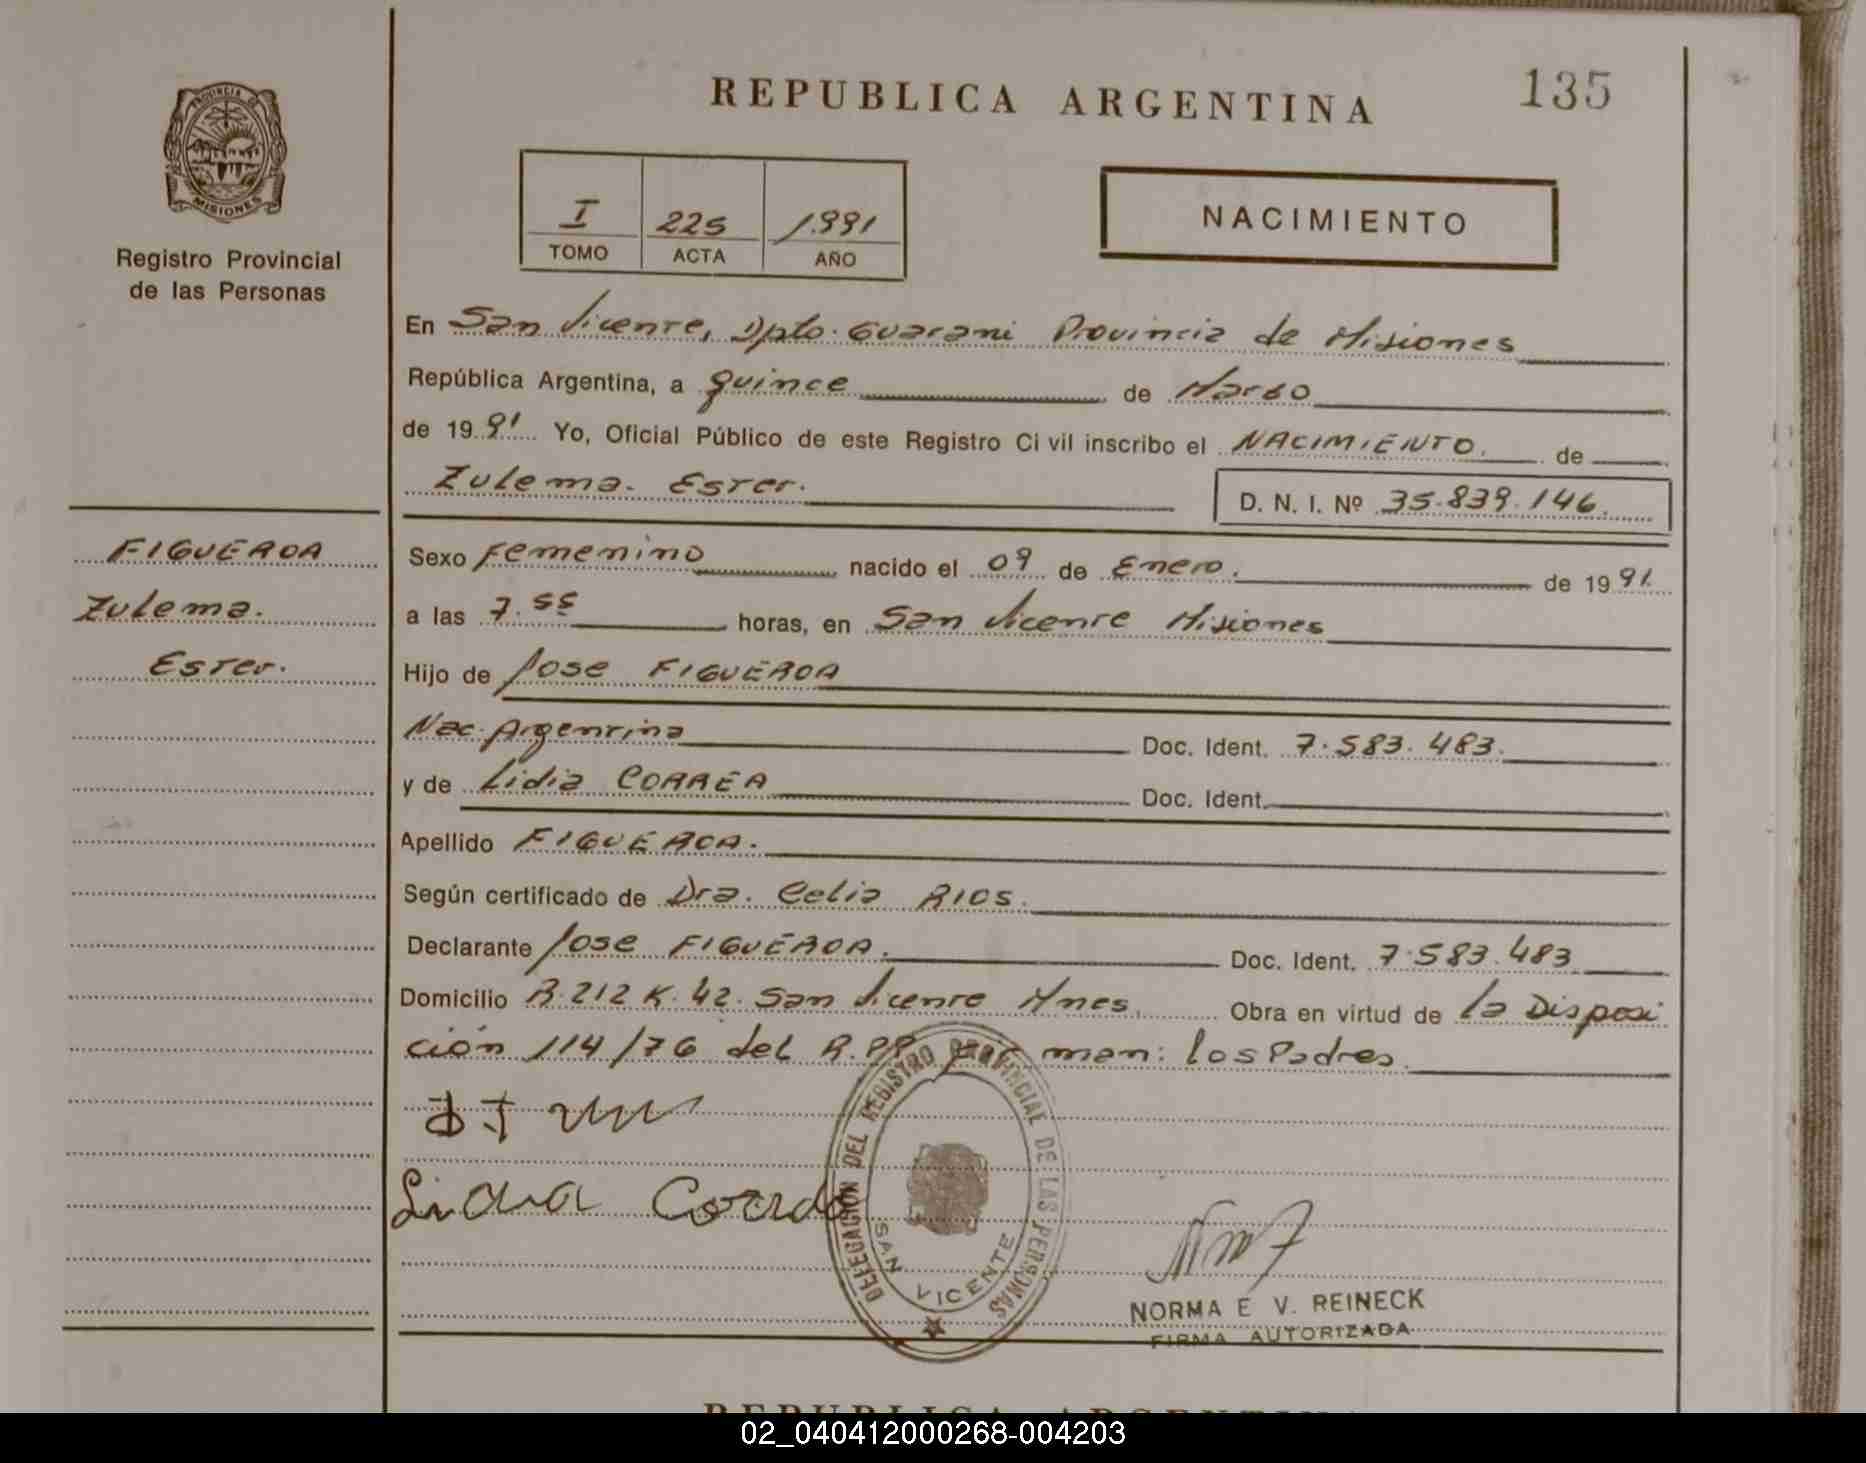 REPUBLICA ARGENTINA
135
PROVINCIA DE
MISIONES
Registro Provincial
de las Personas
I 225 1.991
TOMO ACTA AÑO
NACIMIENTO
En San Vicente, Dpto. Guarani Provincia de Misiones
República Argentina, a quince de Marso
de 1991 Yo, Oficial Público de este Registro Civil inscribo el NACIMIENTO. de
Zulema. Ester. D. N. I. Nº 35.839.146.
FIGUEROA
Zulema.
Ester.
Sexo Femenino nacido el 09 de Enero. de 1991.
a las 7.55 horas, en San Vicente Misiones
Hijo de Jose FIGUEROA
Nac. Argentina Doc. Ident. 7.583.483.
y de Lidia CORREA Doc. Ident.
Apellido FIGUEROA.
Según certificado de Dra. Celia RIOS.
Declarante Jose FIGUEROA. Doc. Ident. 7.583.483
Domicilio R.212 K.42. San Vicente Mnes. Obra en virtud de la Disposi
ción 114/76 del R.PP. man: los Padres.
DELEGACIÓN DEL REGISTRO PROVINCIAL DE LAS PERSONAS
SAN VICENTE
NORMA E V. REINECK
FIRMA AUTORIZADA
REPUBLICA ARGENTINA
02_040412000268-004203